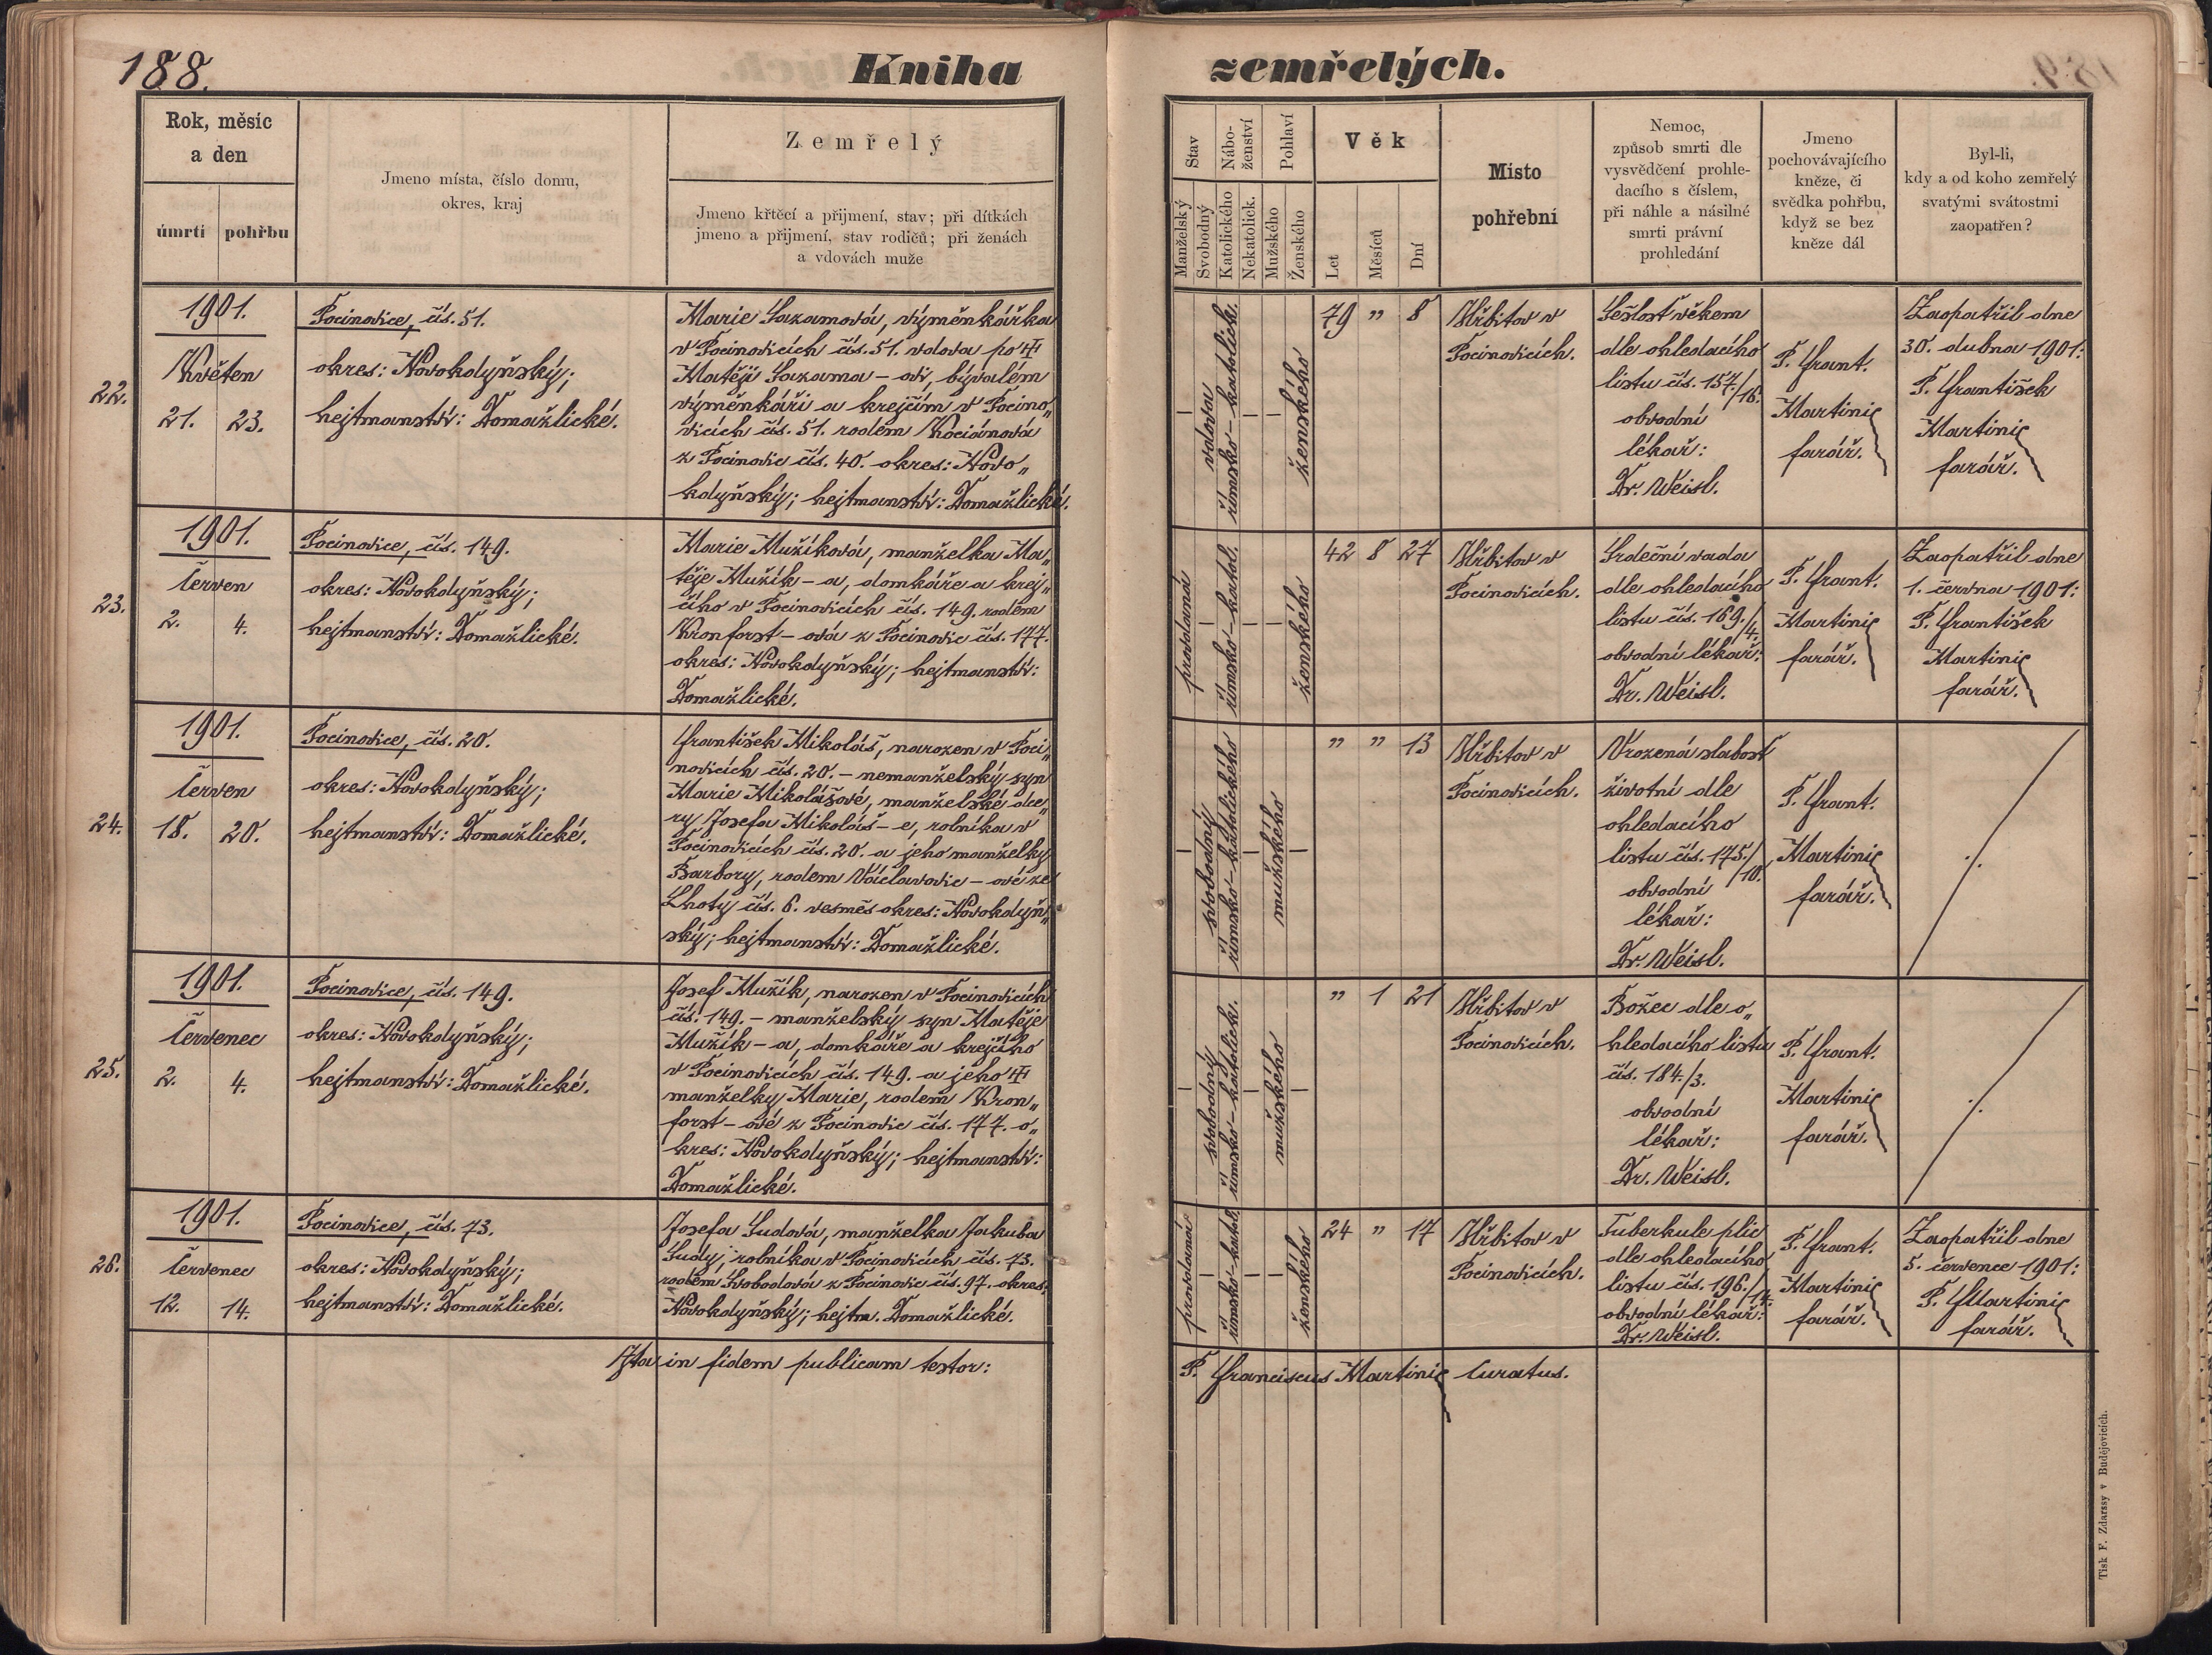 188.
Kniha
zemřelých.
Rok, měsíc
a den
úmrtí
pohřbu
Jmeno místa, číslo domu,
okres, kraj
Zemřelý
Jmeno křtěcí a přijmení, stav; při dítkách
jmeno a přijmení, stav rodičů; při ženách
a vdovách muže
Stav
Manželský
Svobodný
Nábo-
ženství
Katolického
Nekatolick.
Pohlaví
Mužského
Ženského
Věk
Let
Měsíců
Dní
Místo
pohřební
Nemoc,
způsob smrti dle
vysvědčení prohle-
dacího s číslem,
při náhle a násilné
smrti právní
prohledání
Jmeno
pochovávajícího
kněze, či
svědka pohřbu,
když se bez
kněze dál
Byl-li,
kdy a od koho zemřelý
svatými svátostmi
zaopatřen?
22.
1901.
Květen
21. 23.
Pocinovice, čís. 51.
okres: Novokdyňský;
hejtmanství: Domažlické.
Marie Sazamová, výměnkářka
v Pocinovicích čís. 51. vdova po
Matěji Sazama – ovi, bývalém
výměnkáři a krejčím v Pocino„
vicích čís. 51. rodem Kociánová
z Pocinovic čís. 40. okres: Novo„
kdyňský; hejtmanství: Domažlické.
vdova
římsko – katolick.
ženského
79 „ 8
Hřbitov v
Pocinovicích.
Sešlosť věkem
dle ohledacího
listu čís. 157./16.
obvodní
lékař:
Dr. Weisl.
P. Frant.
Martinic
farář.
Zaopatřil dne
30. dubna 1901:
P. František
Martinic
farář.
23.
1901.
Červen
2. 4.
Pocinovice, čís. 149.
okres: Novokdyňský;
hejtmanství: Domažlické.
Marie Mužíková, manželka Ma„
těje Mužík – a, domkáře a krej„
čího v Pocinovicích čís. 149. rodem
Kronforst – ová z Pocinovic čís. 177.
okres: Novokdyňský; hejtmanství:
Domažlické.
provdaná
římsko – katol.
ženského
42 8 27
Hřbitov v
Pocinovicích.
Srdeční vada
dle ohledacího
listu čís. 169./4.
obvodní lékař:
Dr. Weisl.
P. Frant.
Martinic
farář.
Zaopatřil dne
1. června 1901:
P. František
Martinic
farář.
24.
1901.
Červen
18. 20.
Pocinovice, čís. 20.
okres: Novokdyňský;
hejtmanství: Domažlické.
František Mikoláš, narozen v Poci„
novicích čís. 20. – nemanželský syn
Marie Mikolášové, manželské dce„
ry Josefa Mikoláš – e, rolníka v
Pocinovicích čís. 20. a jeho manželky
Barbory, rodem Václavovic – ové ze
Lhoty čís. 6. vesměs okres: Novokdyň„
ský; hejtmanství: Domažlické.
svobodný
římsko – katolického
mužského
„ „ 13
Hřbitov v
Pocinovicích.
Vrozená slabosť
životní dle
ohledacího
listu čís. 175./10.
obvodní
lékař:
Dr. Weisl.
P. Frant.
Martinic
farář.
25.
1901.
Červenec
2. 4.
Pocinovice, čís. 149.
okres: Novokdyňský;
hejtmanství: Domažlické.
Josef Mužík, narozen v Pocinovicích
čís. 149. – manželský syn Matěje
Mužík – a, domkáře a krejčího
v Pocinovicích čís. 149. a jeho
manželky Marie, rodem Kron„
forst – ové z Pocinovic čís. 177. o„
kres: Novokdyňský; hejtmanství:
Domažlické.
svobodný
římsko – katolick.
mužského
„ 1 21
Hřbitov v
Pocinovicích.
Božec dle o„
hledacího listu
čís. 184./3.
obvodní
lékař:
Dr. Weisl.
P. Frant.
Martinic
farář.
26.
1901.
Červenec
12. 14.
Pocinovice, čís. 73.
okres: Novokdyňský;
hejtmanství: Domažlické.
Josefa Sudová, manželka Jakuba
Sudy, rolníka v Pocinovicích čís. 73.
rodem Svobodová z Pocinovic čís. 97. okres:
Novokdyňský; hejtm. Domažlické.
provdaná
římsko – katol.
ženského
24 „ 17
Hřbitov v
Pocinovicích.
Tuberkule plic
dle ohledacího
listu čís. 196./14.
obvodní lékař:
Dr. Weisl.
P. Frant.
Martinic
farář.
Zaopatřil dne
5. července 1901:
P. F Martinic
farář.
Ita in fidem publicam testor:
P. Franciscus Martinic Curatus.
Tisk F. Zdarssy v Budějovicích.